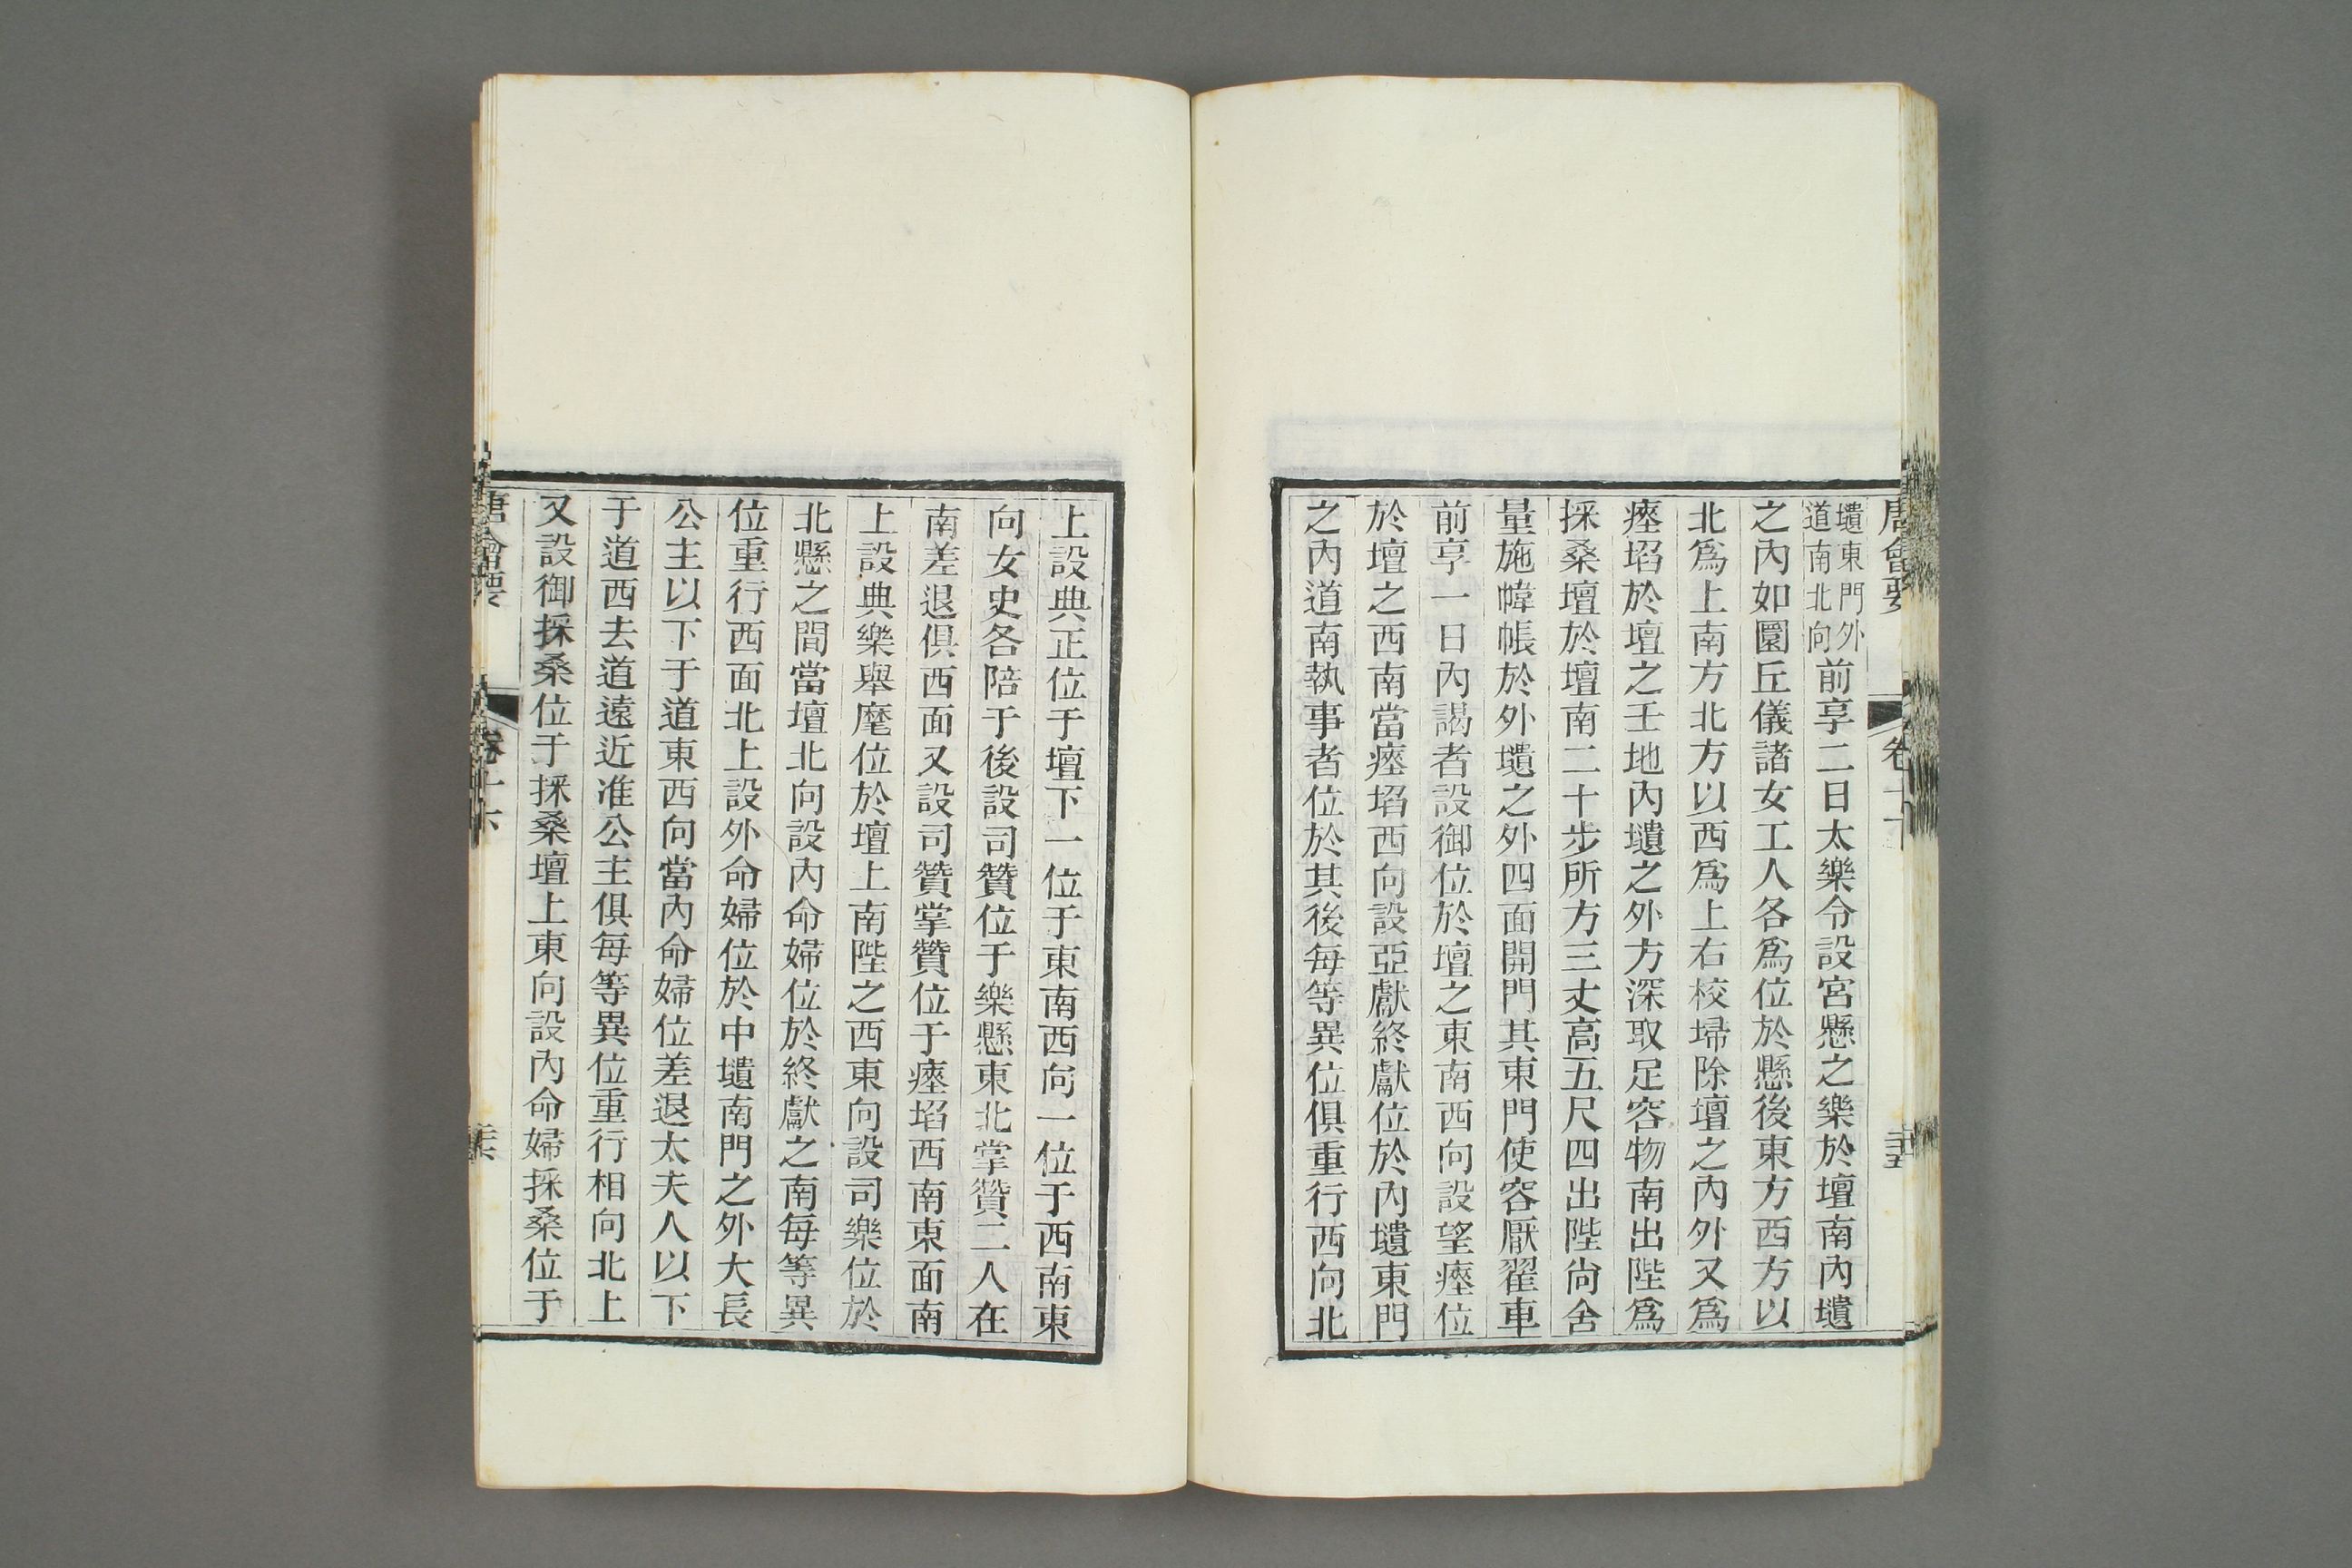 唐會要 卷十
壝東門外
道南北向
前享二日太樂令設宮懸之樂於壇南內壝
之內如圜丘儀諸女工人各爲位於懸後東方西方以
北爲上南方北方以西爲上右校埽除壇之內外又爲
瘞埳於壇之壬地內壝之外方深取足容物南出陛爲
採桑壇於壇南二十步所方三丈高五尺四出陛尙舍
量施幃帳於外壝之外四面開門其東門使容厭翟車
前享一日內謁者設御位於壇之東南西向設望瘞位
於壇之西南當瘞埳西向設亞獻終獻位於內壝東門
之內道南執事者位於其後每等異位俱重行西向北
上設典正位于壇下一位于東南西向一位于西南東
向女史各陪于後設司贊位于樂懸東北掌贊二人在
南差退俱西面又設司贊掌贊位于瘞埳西南東面南
上設典樂舉麾位於壇上南陛之西東向設司樂位於
北懸之間當壇北向設內命婦位於終獻之南每等異
位重行西面北上設外命婦位於中壝南門之外大長
公主以下于道東西向當內命婦位差退太夫人以下
于道西去道遠近准公主俱每等異位重行相向北上
又設御採桑位于採桑壇上東向設內命婦採桑位于
唐會要 卷十六